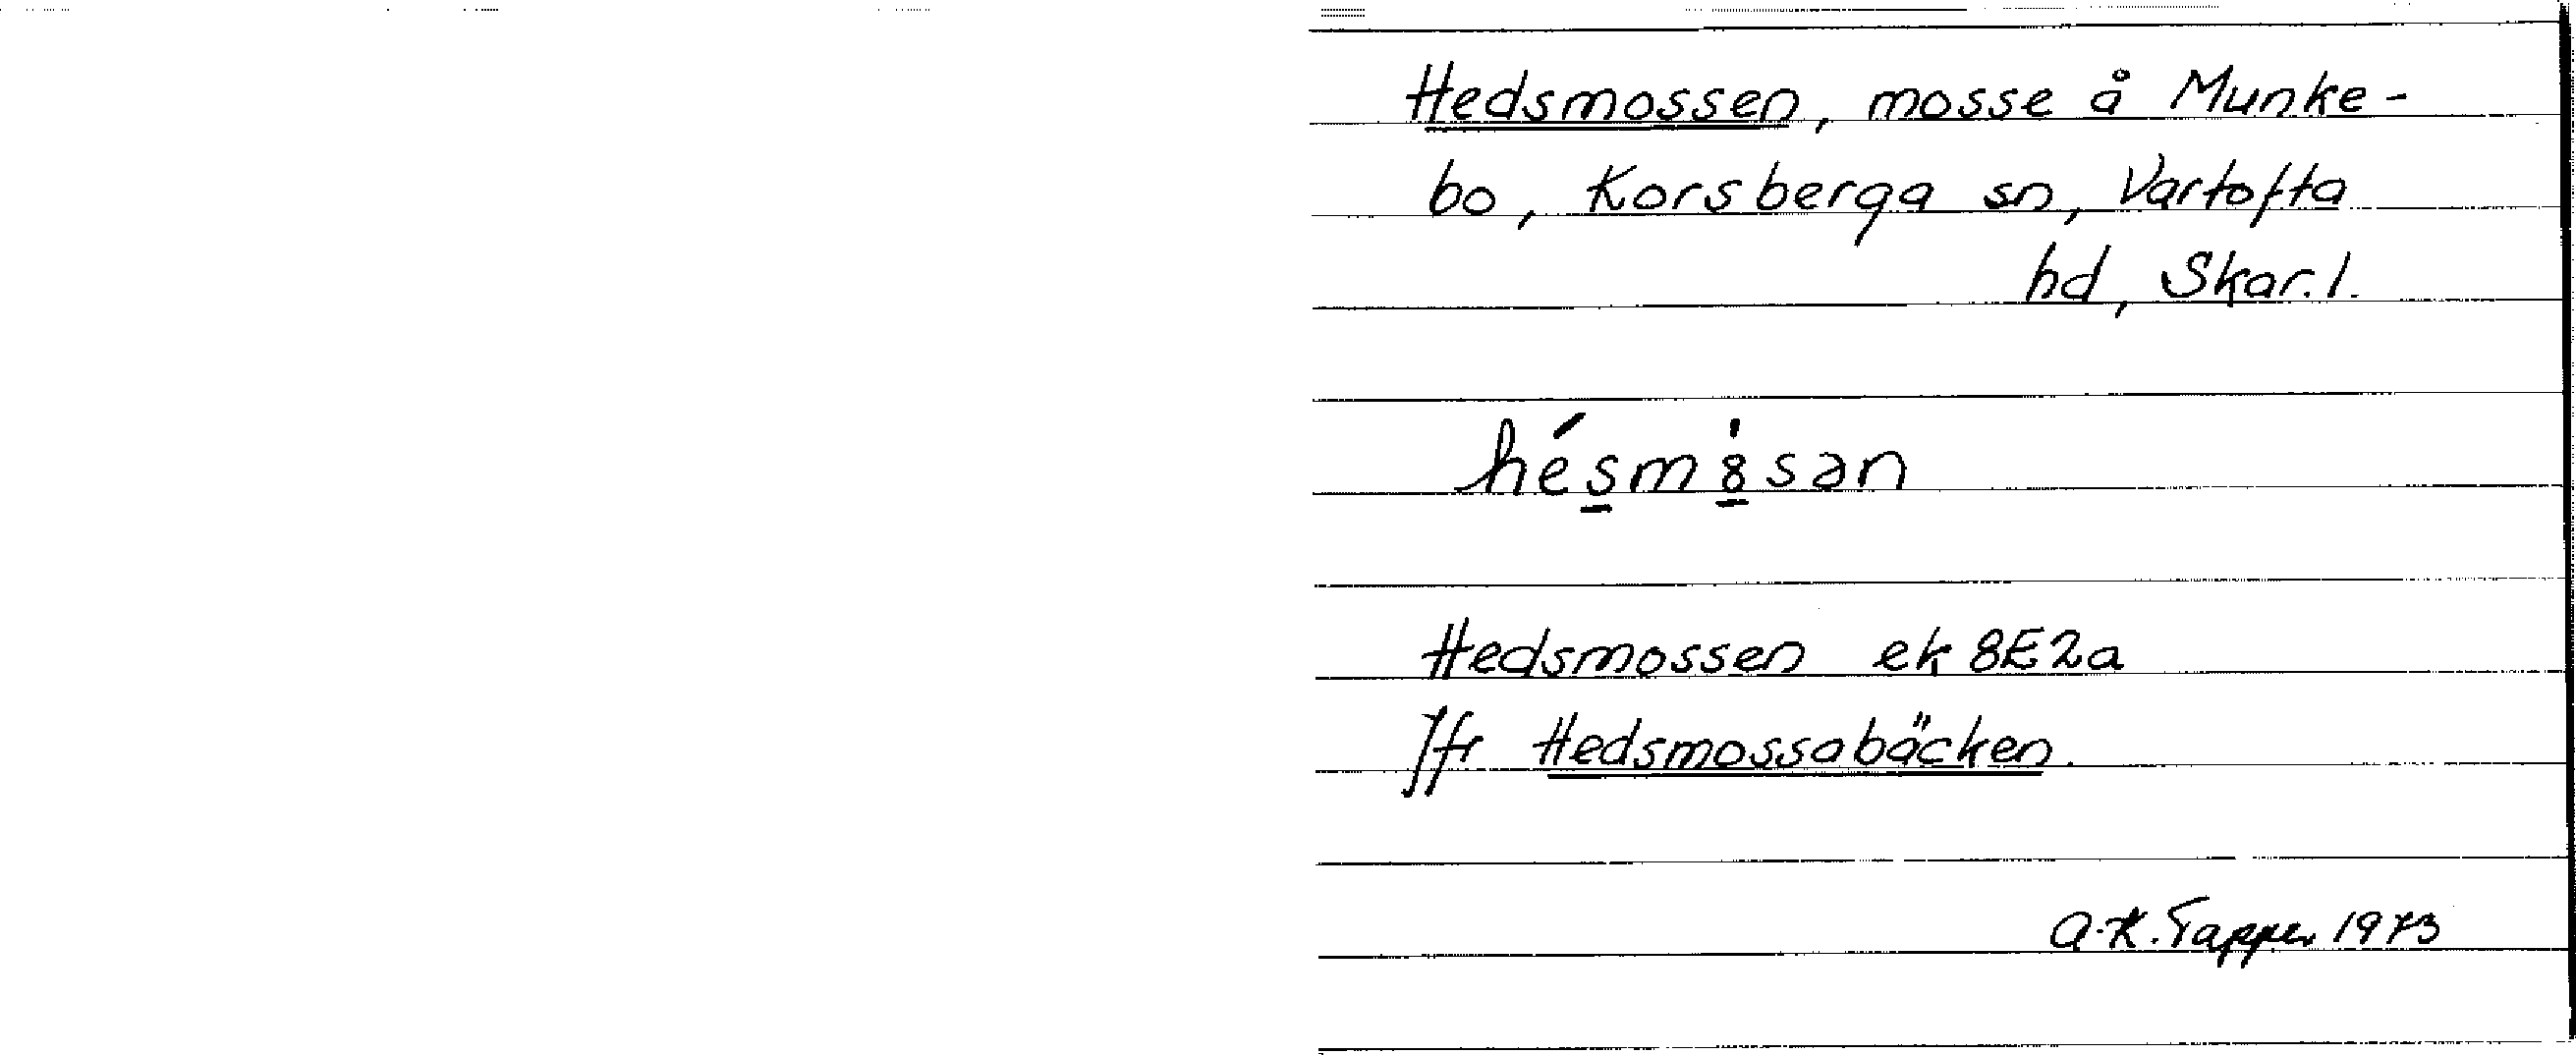 Hedsmossen, mosse å Munke-
bo, Korsberga sn, Vartofta
hd, Skar. l.
hésm8̇sən
Hedsmossen ek 8E2a
Jfr Hedsmossabäcken.
A-K. Tapper 1973